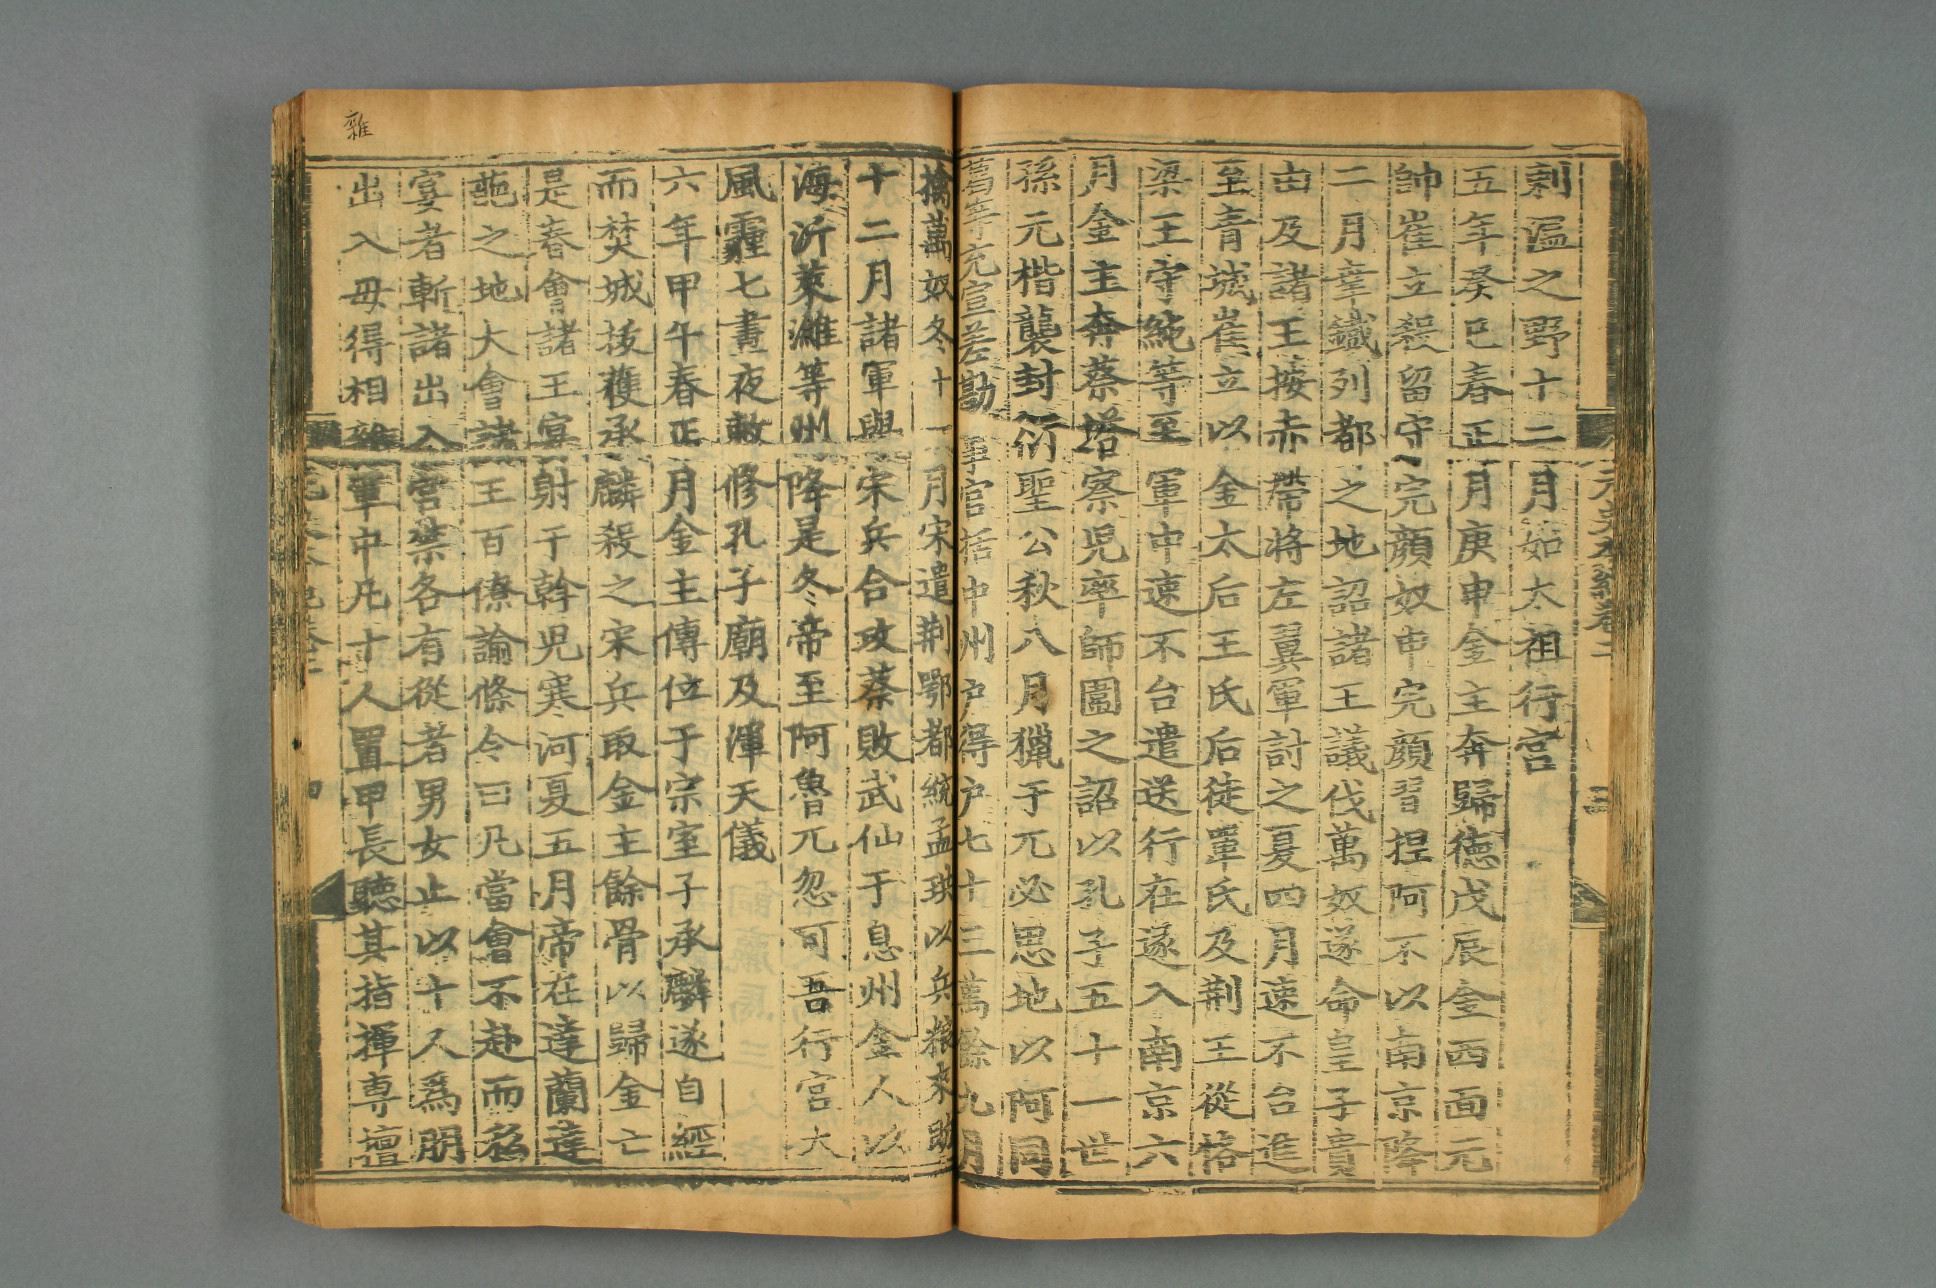 元史本紀卷二
三
剌溫之野十二月如太祖行宮
五年癸巳春正月庚申金主奔歸德戊辰金西面元
帥崔立殺留守完顏奴申完顏習捏阿不以南京降
二月幸鐵列都之地詔諸王議伐萬奴遂命皇子貴
由及諸王按赤帶將左翼軍討之夏四月速不台進
至青城崔立以金太后王氏后徒單氏及荊王從恪
梁王守純等至軍中速不台遣送行在遂入南京六
月金主奔蔡塔察兒率師圍之詔以孔子五十一世
孫元楷襲封衍聖公秋八月獵于兀必思地以阿同
葛等充宣差勘事官括中州户得户七十三萬餘九月
擒萬奴冬十一月宋遣荊鄂都統孟珙以兵粮來助
十二月諸軍與宋兵合攻蔡敗武仙于息州金人以
海沂萊濰等州降是冬帝至阿魯兀忽可吾行宮大
風霾七晝夜敕修孔子廟及渾天儀
六年甲午春正月金主傳位于宗室子承麟遂自經
而焚城拔獲承麟殺之宋兵取金主餘骨以歸金亡
是春會諸王宴射于斡兒寒河夏五月帝在達蘭達
葩之地大會諸王百僚諭條令曰凡當會不赴而私
宴者斬諸出入宮禁各有從者男女止以十人爲朋
出入毋得相雜軍中凡十人置甲長聽其指揮專擅
雜